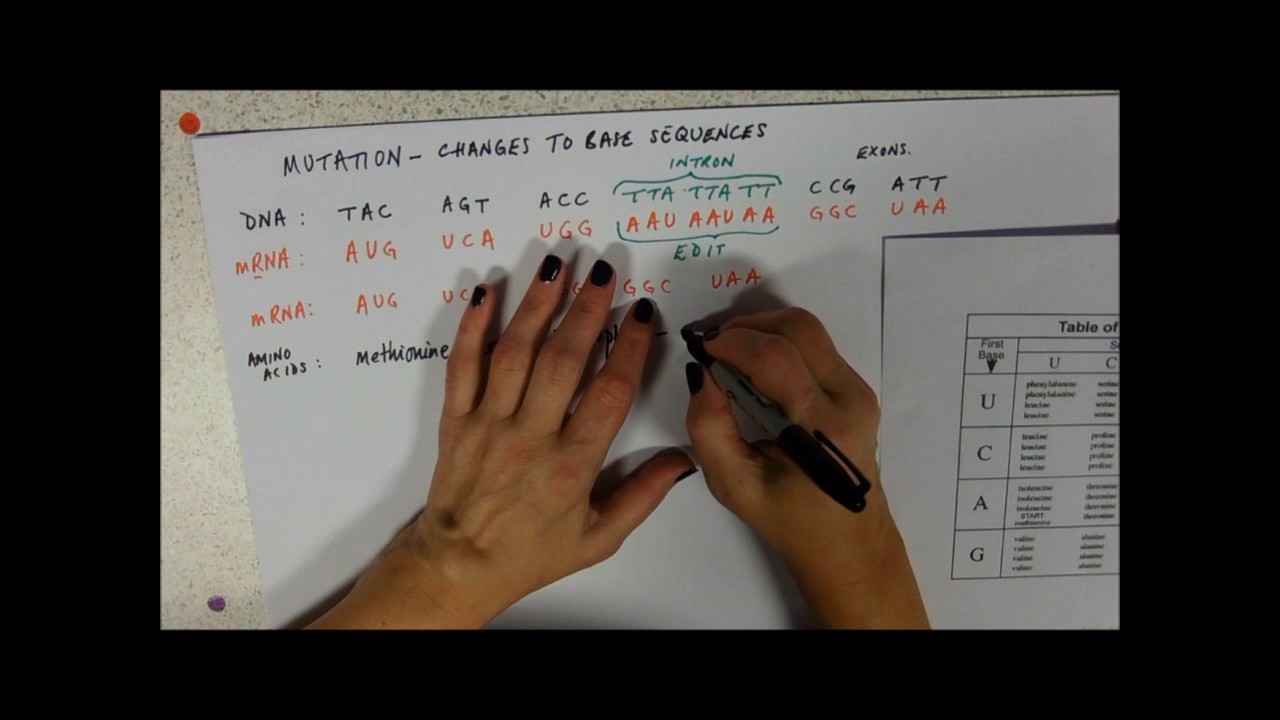 MUTATION - CHANGES TO BASE SEQUENCES
INTRON
EXONS.
DNA : TAC AGT ACC TTA TTA TT CCG ATT
mRNA : AUG UCA UGG AAU AAU AA GGC UAA
EDIT
mRNA: AUG UC GGC UAA
AMINO ACIDS : Methionine
Table of
First Base
U C
U
phenylalanine serine
phenylalanine serine
leucine serine
leucine serine
C
leucine proline
leucine proline
leucine proline
leucine proline
A
isoleucine threonine
isoleucine threonine
isoleucine threonine
START
methionine threonine
G
valine alanine
valine alanine
valine alanine
valine alanine